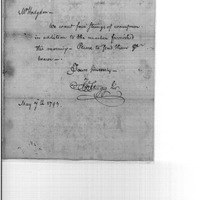 Mr Hodgdon
We want four strings of wampum
in addition to the number furnished
this morning - Please to send them by
bearer -
Yours sincerely
May 7th 1794